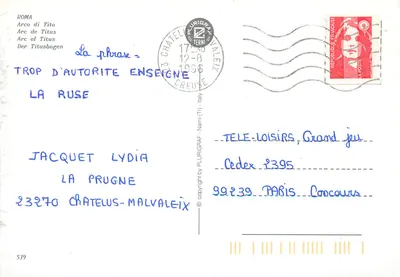 ROMA
Arco di Tito
Arc de Titus
Arc of Titus
Der Titusbogen
La phrase =
TROP D'AUTORITE ENSEIGNE
LA RUSE
JACQUET LYDIA
LA PRUGNE
23270 CHATELUS-MALVALEIX
539
© copyright by PLURIGRAF - Narni (TR) - Italy
PLURIGRAF
TERNI
12-8
CREUSE
TELE-LOISIRS, Grand jeu
Cedex 2395
99239 PARIS Concours